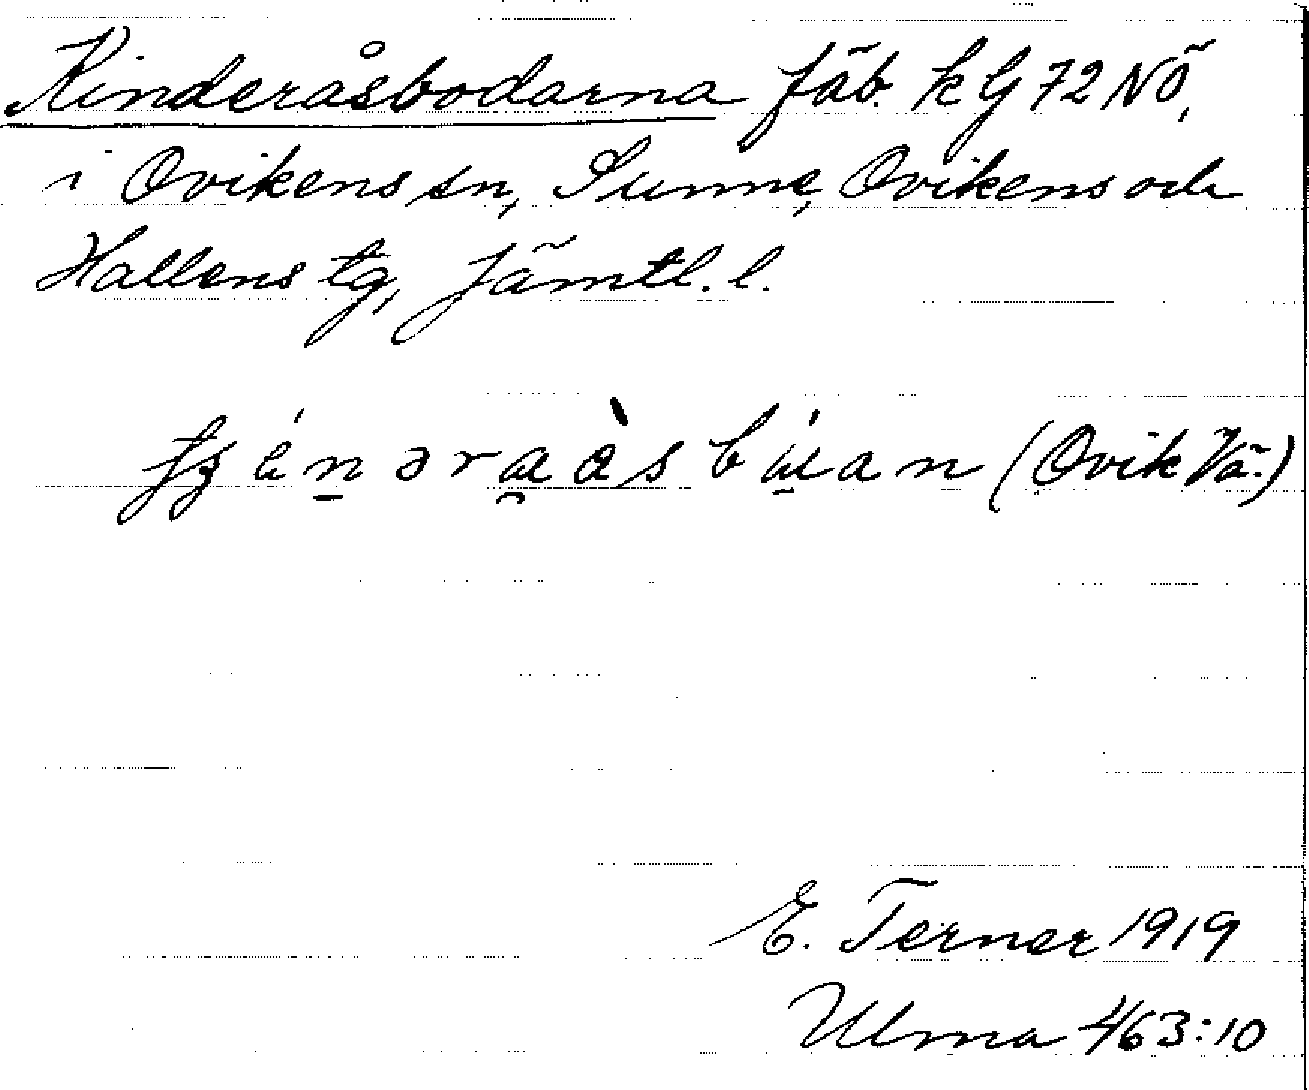 Kinderåsbodarna fäb. k G 72 NÖ,
i Ovikens sn, Sunne, Ovikens och
Hallens tg, Jämtl. l.
(Ovik Vä.)
E. Terner 1919
Ulma 463:10